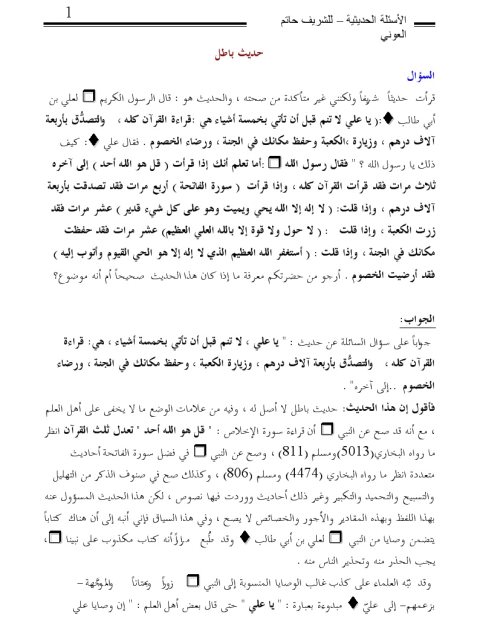 1
الأسئلة الحديثية – للشريف حاتم
العوني
حديث باطل
السؤال
قرأت حديثاً شريفاً ولكنني غير متأكدة من صحته ، والحديث هو : قال الرسول الكريم □ لعلي بن
أبي طالب ♦:( يا علي لا تنم قبل أن تأتي بخمسة أشياء هي :قراءة القرآن كله ، والتصدُّق بأربعة
آلاف درهم ، وزيارة ،الكعبة وحفظ مكانك في الجنة ، ورضاء الخصوم . فقال علي ♦: كيف
ذلك يا رسول الله ؟ " فقال رسول الله □ :أما تعلم أنك إذا قرأت ( قل هو الله أحد ) إلى آخره
ثلاث مرات فقد قرأت القرآن كله ، وإذا قرأت ( سورة الفاتحة ) أربع مرات فقد تصدقت بأربعة
آلاف درهم ، وإذا قلت: ( لا إله إلا الله يحي ويميت وهو على كل شيء قدير ) عشر مرات فقد
زرت الكعبة ، وإذا قلت : ( لا حول ولا قوة إلا بالله العلي العظيم) عشر مرات فقد حفظت
مكانك في الجنة ، وإذا قلت : ( أستغفر الله العظيم الذي لا إله إلا هو الحي القيوم وأتوب إليه )
فقد أرضيت الخصوم . أرجو من حضرتكم معرفة ما إذا كان هذا الحديث صحيحاً أم أنه موضوع؟
الجواب:
جواباً على سؤال السائلة عن حديث : " يا علي ، لا تنم قبل أن تأتي بخمسة أشياء ، هي: قراءة
القرآن كله ، والتصدُّق بأربعة آلاف درهم ، وزيارة الكعبة ، وحفظ مكانك في الجنة ، ورضاء
الخصوم ..إلى آخره" .
فأقول إن هذا الحديث: حديث باطل لا أصل له ، وفيه من علامات الوضع ما لا يخفى على أهل العلم
، مع أنه قد صح عن النبي □ أن قراءة سورة الإخلاص : " قل هو الله أحد " تعدل ثلث القرآن انظر
ما رواه البخاري(5013)ومسلم (811) ، وصح عن النبي □ في فضل سورة الفاتحة أحاديث
متعددة انظر ما رواه البخاري (4474) ومسلم (806) ، وكذلك صح في صنوف الذكر من التهليل
والتسبيح والتحميد والتكبير وغير ذلك أحاديث ووردت فيها نصوص ، لكن هذا الحديث المسؤول عنه
بهذا اللفظ وبهذه المقادير والأجور والخصائص لا يصح ، وفي هذا السياق فإني أنبه إلى أن هناك كتاباً
يتضمن وصايا من النبي □ لعلي بن أبي طالب ♦ وقد طُبع مؤخراً أنه كتاب مكذوب على نبينا □،
يجب الحذر منه وتحذير الناس منه .
وقد نبّه العلماء على كذب غالب الوصايا المنسوبة إلى النبي □ زوراً وبهتاناً والموجَّهة –
بزعمهم– إلى عليّ ♦ مبدوءة بعبارة : " يا علي " حتى قال بعض أهل العلم : " إن وصايا علي